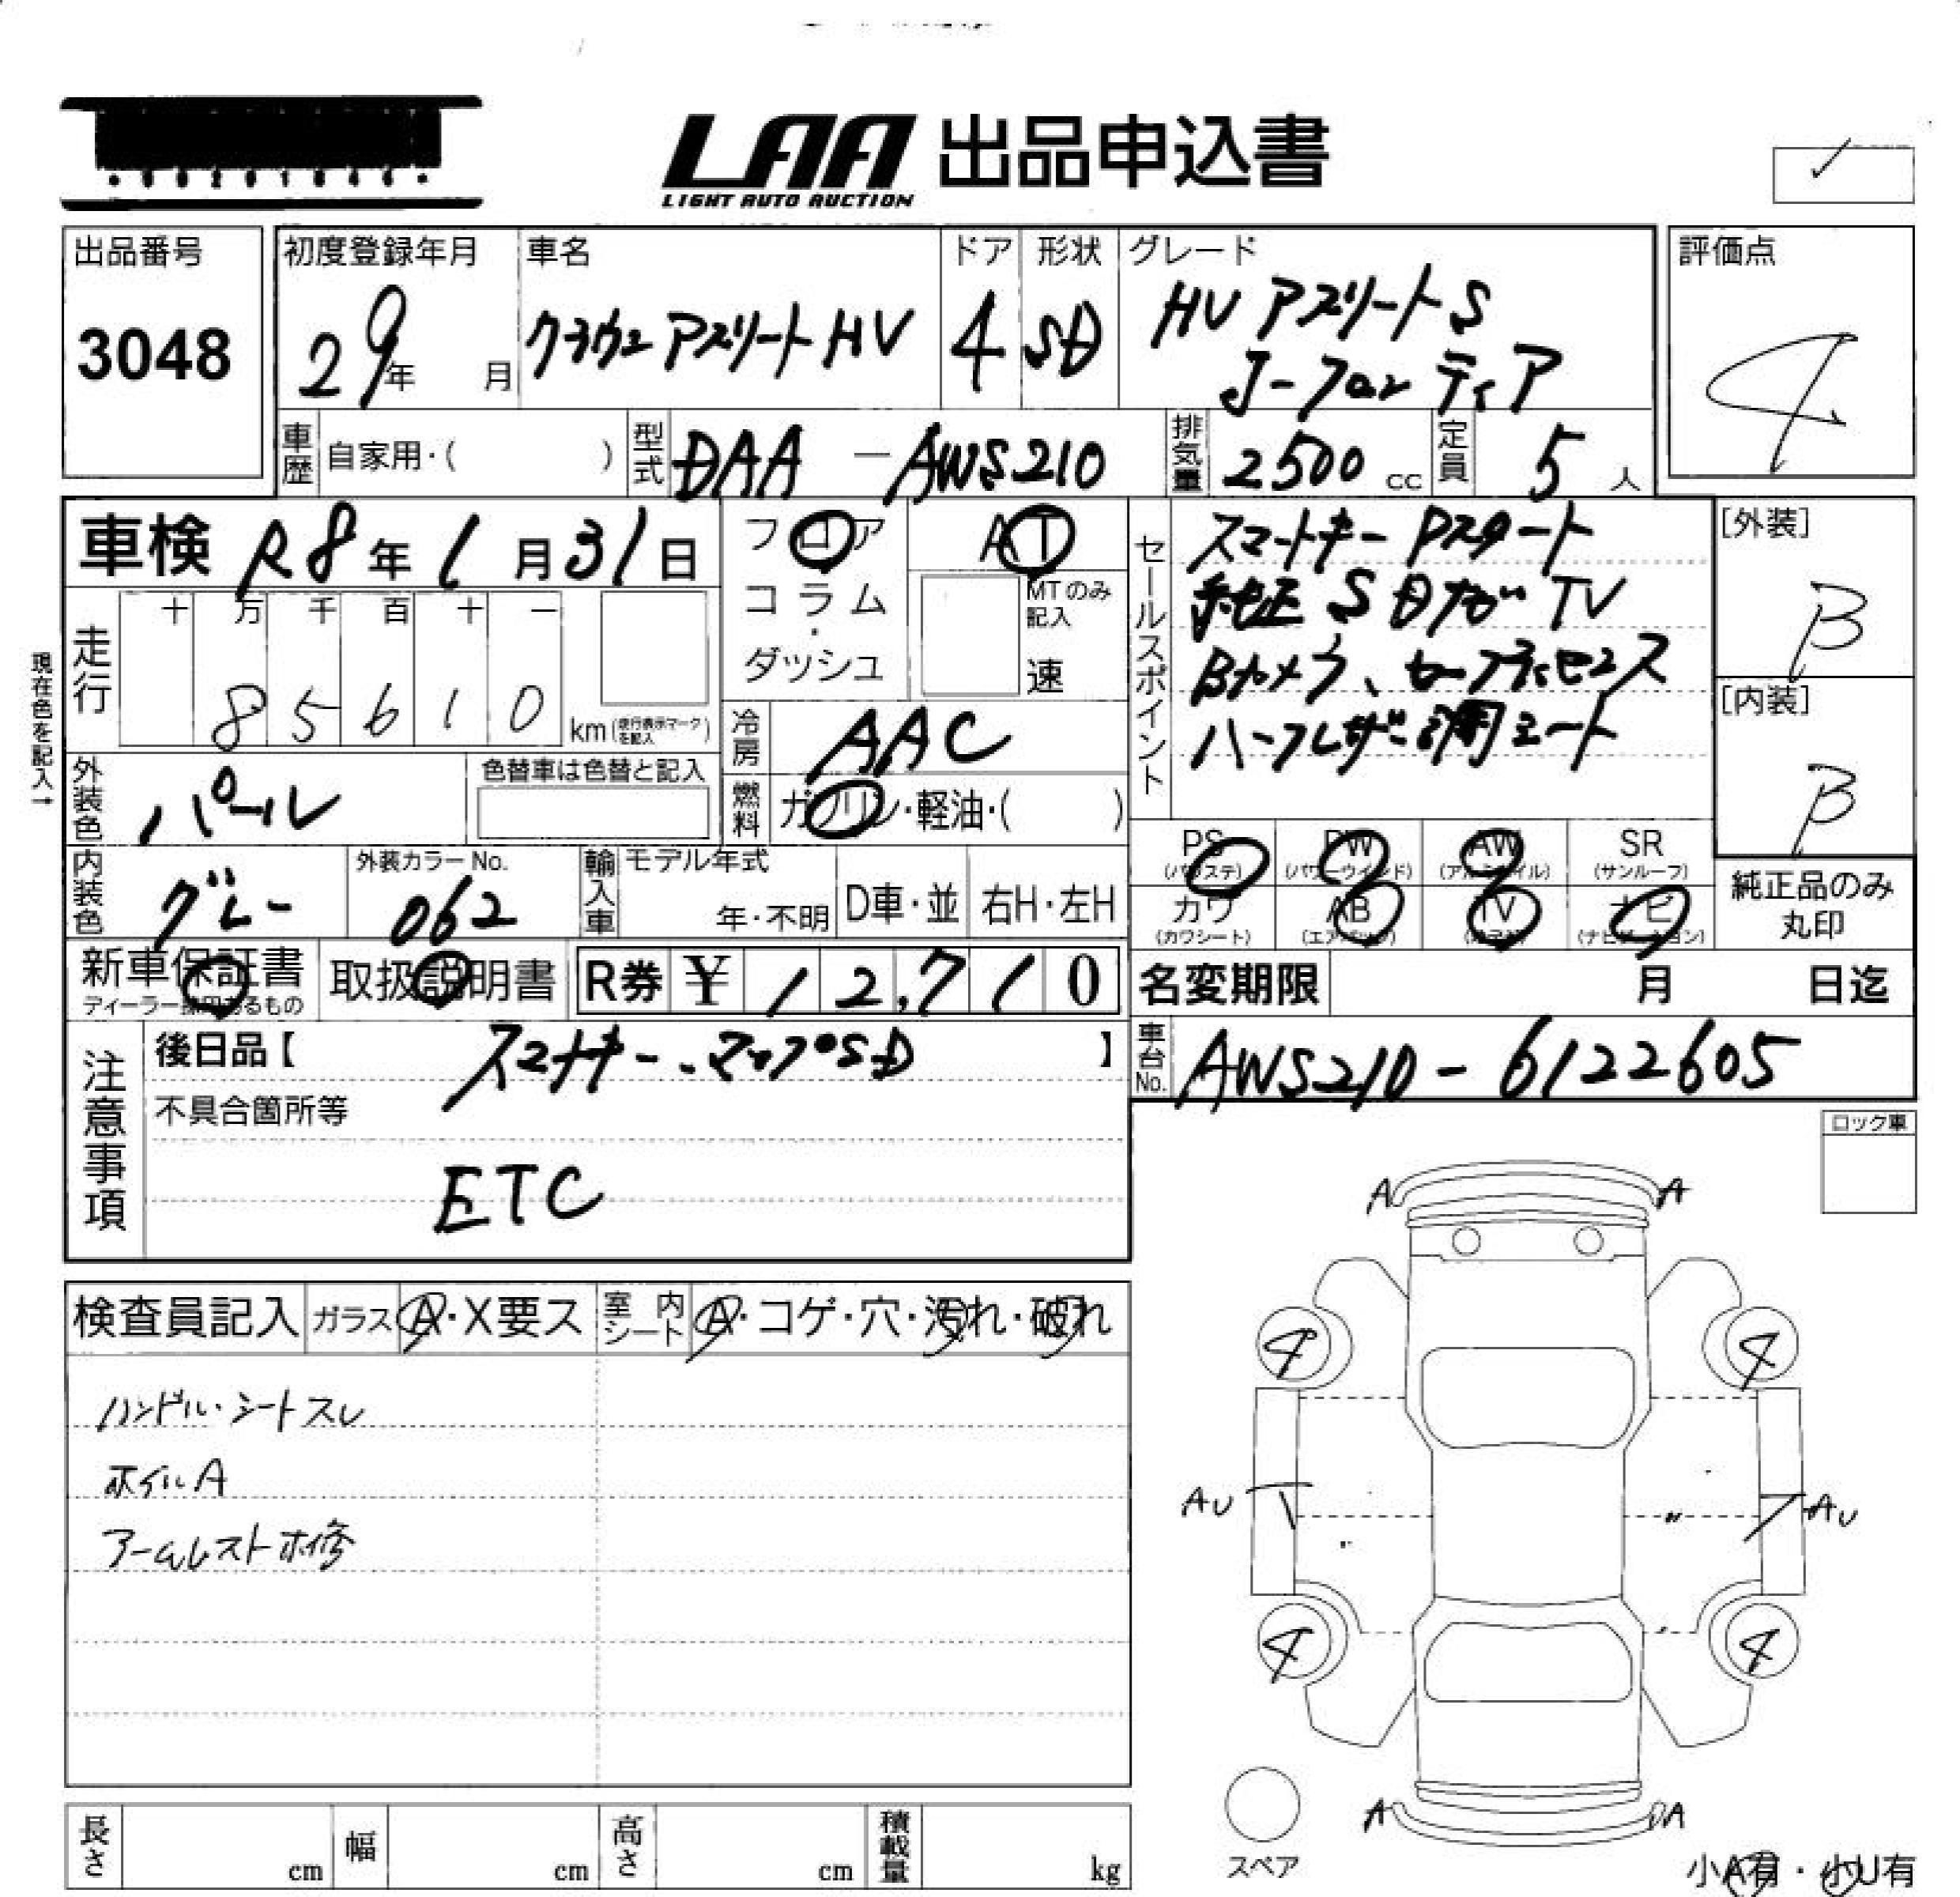 LAA 出品申込書
LIGHT AUTO AUCTION
出品番号
3048
初度登録年月
29年 月
車名
クラウンアスリートHV
ドア
4
形状
SD
グレード
HV アスリートS
J-フロンティア
評価点
4
車歴
自家用・( )
型式
DAA-AWS210
排気量
2500 cc
定員
5人
車検 R8年1月31日
フロア
コラム・
ダッシュ
AT
MTのみ
記入
速
現在色を記入→
走行
十 万 千 百 十 一
8 5 6 1 0
km(走行表示マークを記入)
冷房
AAC
燃料
ガソリン・軽油・( )
外装色
パール
色替車は色替と記入
内装色
グレー
外装カラーNo.
062
輸入車
モデル年式
年・不明
D車・並
右H・左H
セールスポイント
スマートキー Pスタート
純正SDナビ TV
Bカメラ、セーフティセンス
ハーフレザー調シート
[外装]
B
[内装]
B
PS
(パワステ)
PW
(パワーウインド)
AW
(アルミホイル)
SR
(サンルーフ)
カワ
(カワシート)
AB
(エアバック)
TV
ナビ
(ナビゲーション)
純正品のみ
丸印
新車保証書
ディーラー捺印あるもの
取扱説明書
R券 ¥12,710
名変期限 月 日迄
車台No.
AWS210-6122605
注意事項
後日品【 スマートキー、マップSD 】
不具合箇所等
ETC
ロック車
検査員記入
ガラス A・X要ス
室内シート A・コゲ・穴・汚れ・破れ
ハンドル・シートスレ
ホイルA
アームレスト補修
A A
4 4
AU AU
4 4
A A
スペア
小A有・小U有
長さ cm
幅 cm
高さ cm
積載量 kg